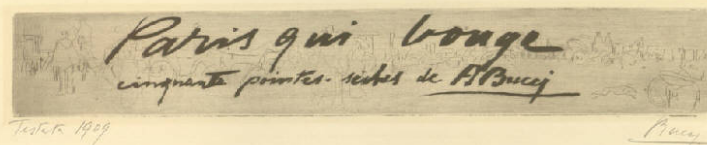 Paris qui bouge
cinquante pointes-sèches de ABucci
Testata 1909
Bucci